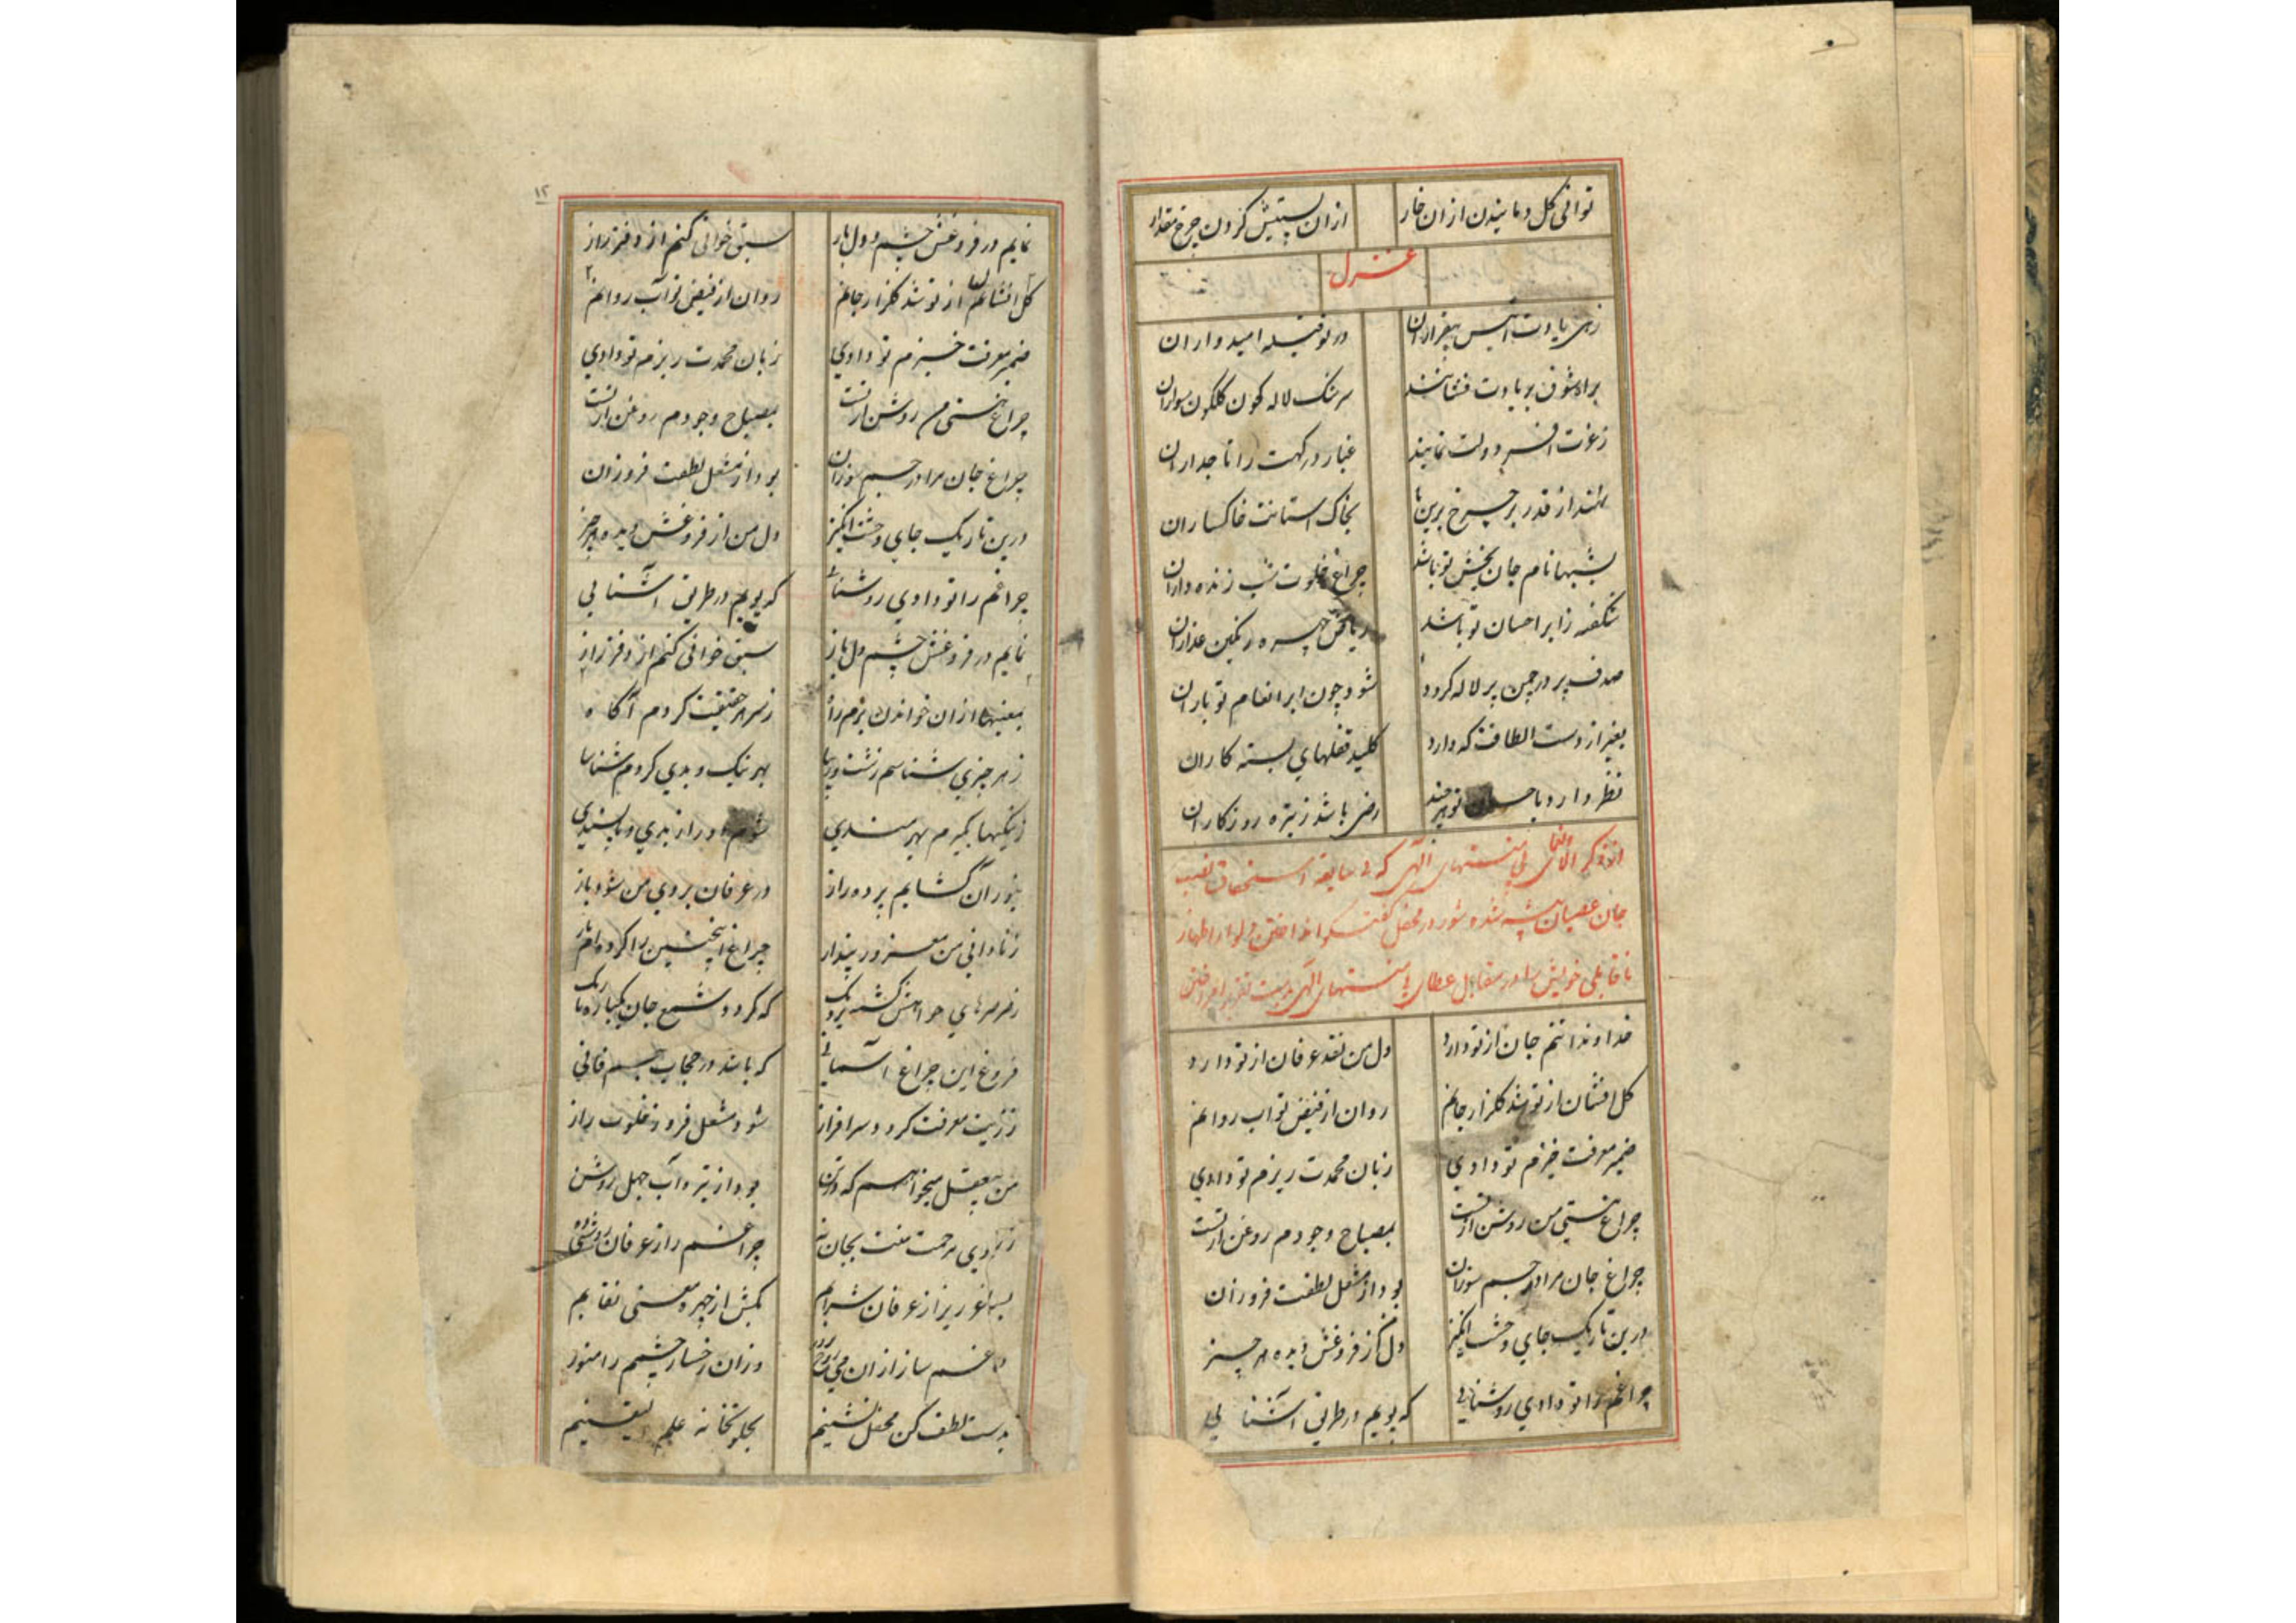 توانی کل دمانیدن ازان خار ازان پستیش کردن چرخ مقدار
غزل
زهی یادت انیس بیقراران درتو قبله امیدواران
براه شوق بر یادت فشانند سرشک لاله کون کلکون سواران
زعزت افسر دولت نمایند غبار درکهت را تاجداران
نهند از قدر بر چرخ برین پا بخاک استانت خاکساران
بشبها نام جان بخش تو باشد چراغ خلوت شب زنده داران
شکفته ز ابر احسان تو باشد ریاض چهره رنکین عذاران
صدف پر در چمن پر لاله کردد شود چون ابر انعام تو باران
بغیر از دست الطافت که دارد کلید قفلهای بسته کاران
نظر دارد باحسان تو هرچند رضی باشد ز تیره روزکاران
منتهای الهی که بی سابقه استحقاق نصیب
جان عصیان پیشه شده و شور در محفل کفتکو انداختن و لوا اظهار
ناقابلی خویش را در مقابل عطای منتهای الهی
خداوندا تنم جان از تو دارد دل من نقد عرفان از تو دارد
کل افشان از تو شد کلزار جانم روان از فیض تو اب روانم
ضمیر معرفت خیزم تو دادی زبان محمدت ریزم تو دادی
چراغ هستی من روشن از تست بمصباح وجودم روغن از تست
چراغ جان مرا در جسم سوزان بود از مشعل لطفت فروزان
درین تاریک جای وحشت انکیز دل من کز فروغش دیده هر چیز
چراغم را تو دادی روشنایی که پویم در طریق آشنایی
۱۲
نمایم در فروغش چشم دل باز سبق خوانی کنم از دفتر راز
کل افشان از تو شد کلزار جانم روان از فیض تو آب روانم
ضمیر معرفت خیزم تو دادی زبان محمدت ریزم تو دادی
چراغ هستی من روشن از تست بمصباح وجودم روغن از تست
چراغ جان مرا در جسم سوزان بود از مشعل لطفت فروزان
درین تاریک جای وحشت انکیز دل من از فروغش دیده هر چیز
چراغم را تو دادی روشنایی که پویم در طریق آشنایی
نمایم در فروغش چشم دل باز سبق خوانی کنم از دفتر راز
بمعنیها ازان خواندن برم راه ز سر هر حقیقت کردم آکاه
ز هر چیزی شناسم زشت و زیبا بهر نیک و بدی کردم شناسا
ز نیکیها بکیرم بهره مندی شوم دور از بدی و ناپسندی
بنور آن کشایم پرده راز در عرفان بروی من شود باز
ز نادانی من مغرور پندار چراغ اینچنین را کرده ام تار
ز صرصرهای خواهش کشته نزدیک که کردد شمع جان یکباره تاریک
فروغ این چراغ آسمانی که باشد در حجاب جسم فانی
ز زیت معرفت کردد سرافراز شود مشعل فروز خلوت راز
من بیعقل میخواهم که در تن بود از تیره آب جهل روشن
ز راوی مرحمت منت بجان نه چراغم را ز عرفان روشنی ده
بساغر ریز از عرفان شرابم بکش از چهره معنی نقابم
دماغم ساز ازان می وزان رخسار چشمم را منور
بدست لطف کن محفل نشینم بجلوتخانه علم یقینم